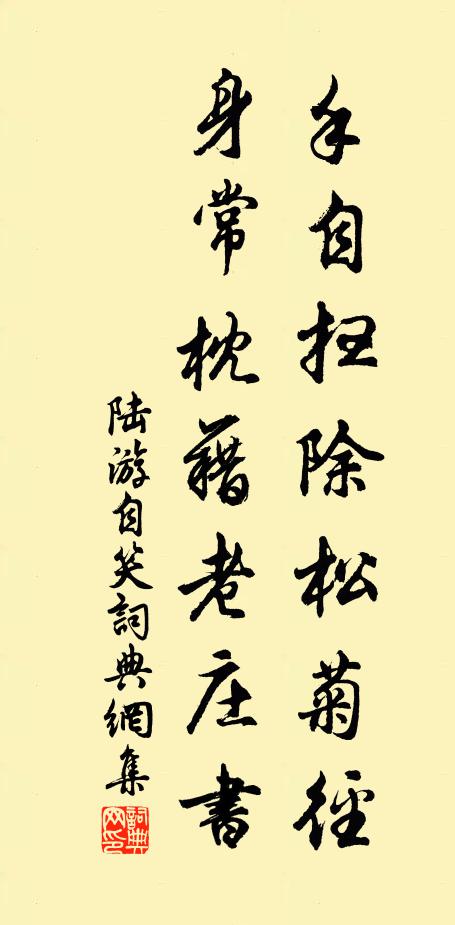 手自扫除松菊径
身常枕藉老庄書
陆游自笑詞典網集
詞典网印